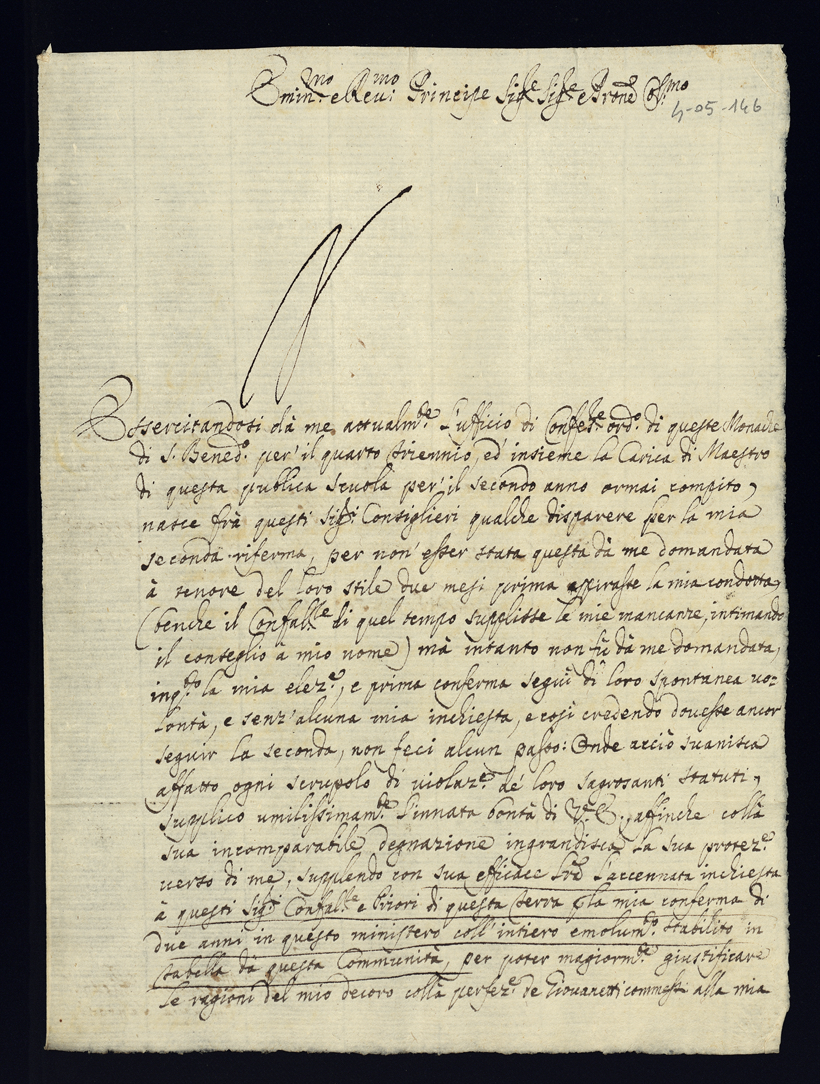 Emin.mo e Rev.mo Principe Sig.re Sig.re e Prone Oss.mo
4-05-146
Essercitandosi dà me attualm.te l'ufficio di Confess.re ord.o di queste Monache
di S. Bened.o per' il quarto triennio, ed' insieme la Carica di Maestro
di questa publica scuola per' il secondo anno ormai compito,
nasce frà questi Sig.ri Consiglieri qualche disparere per la mia
seconda riferma, per non' esser stata questa dà me domandata
à tenore del loro stile due mesi prima spirasse la mia condotta,
(benche il Confal.re di quel tempo supplisse le mie mancanze, intimando
il conseglio à mio nome) mà intanto non fù dà me domandata,
inq.to la mia elez.e, e prima conferma seguì di loro spontanea vo=
lontà, e senz' alcuna mia inchiesta, e così credendo dovesse ancor
seguir la seconda, non feci alcun passo: Onde acciò svanisca
affatto ogni scrupolo di violaz.e de' loro sagrosanti statuti,
supplico umilissimam.te l'innata bontà di V.E., affinche collà
sua incomparabile degnazione ingrandisca la sua protez.e
verso di me, supplendo con sua efficace l'accennata inchiesta
à questi Sig.ri Confal.re e Priori di questa Terra p la mia conferma di
due anni in questo ministero coll' intiero emolum.to stabilito in
tabella dà questa Communità, per poter magiorm.te giustificare
le ragioni del mio decoro collà perfez.e de Giovanetti commessi alla mia